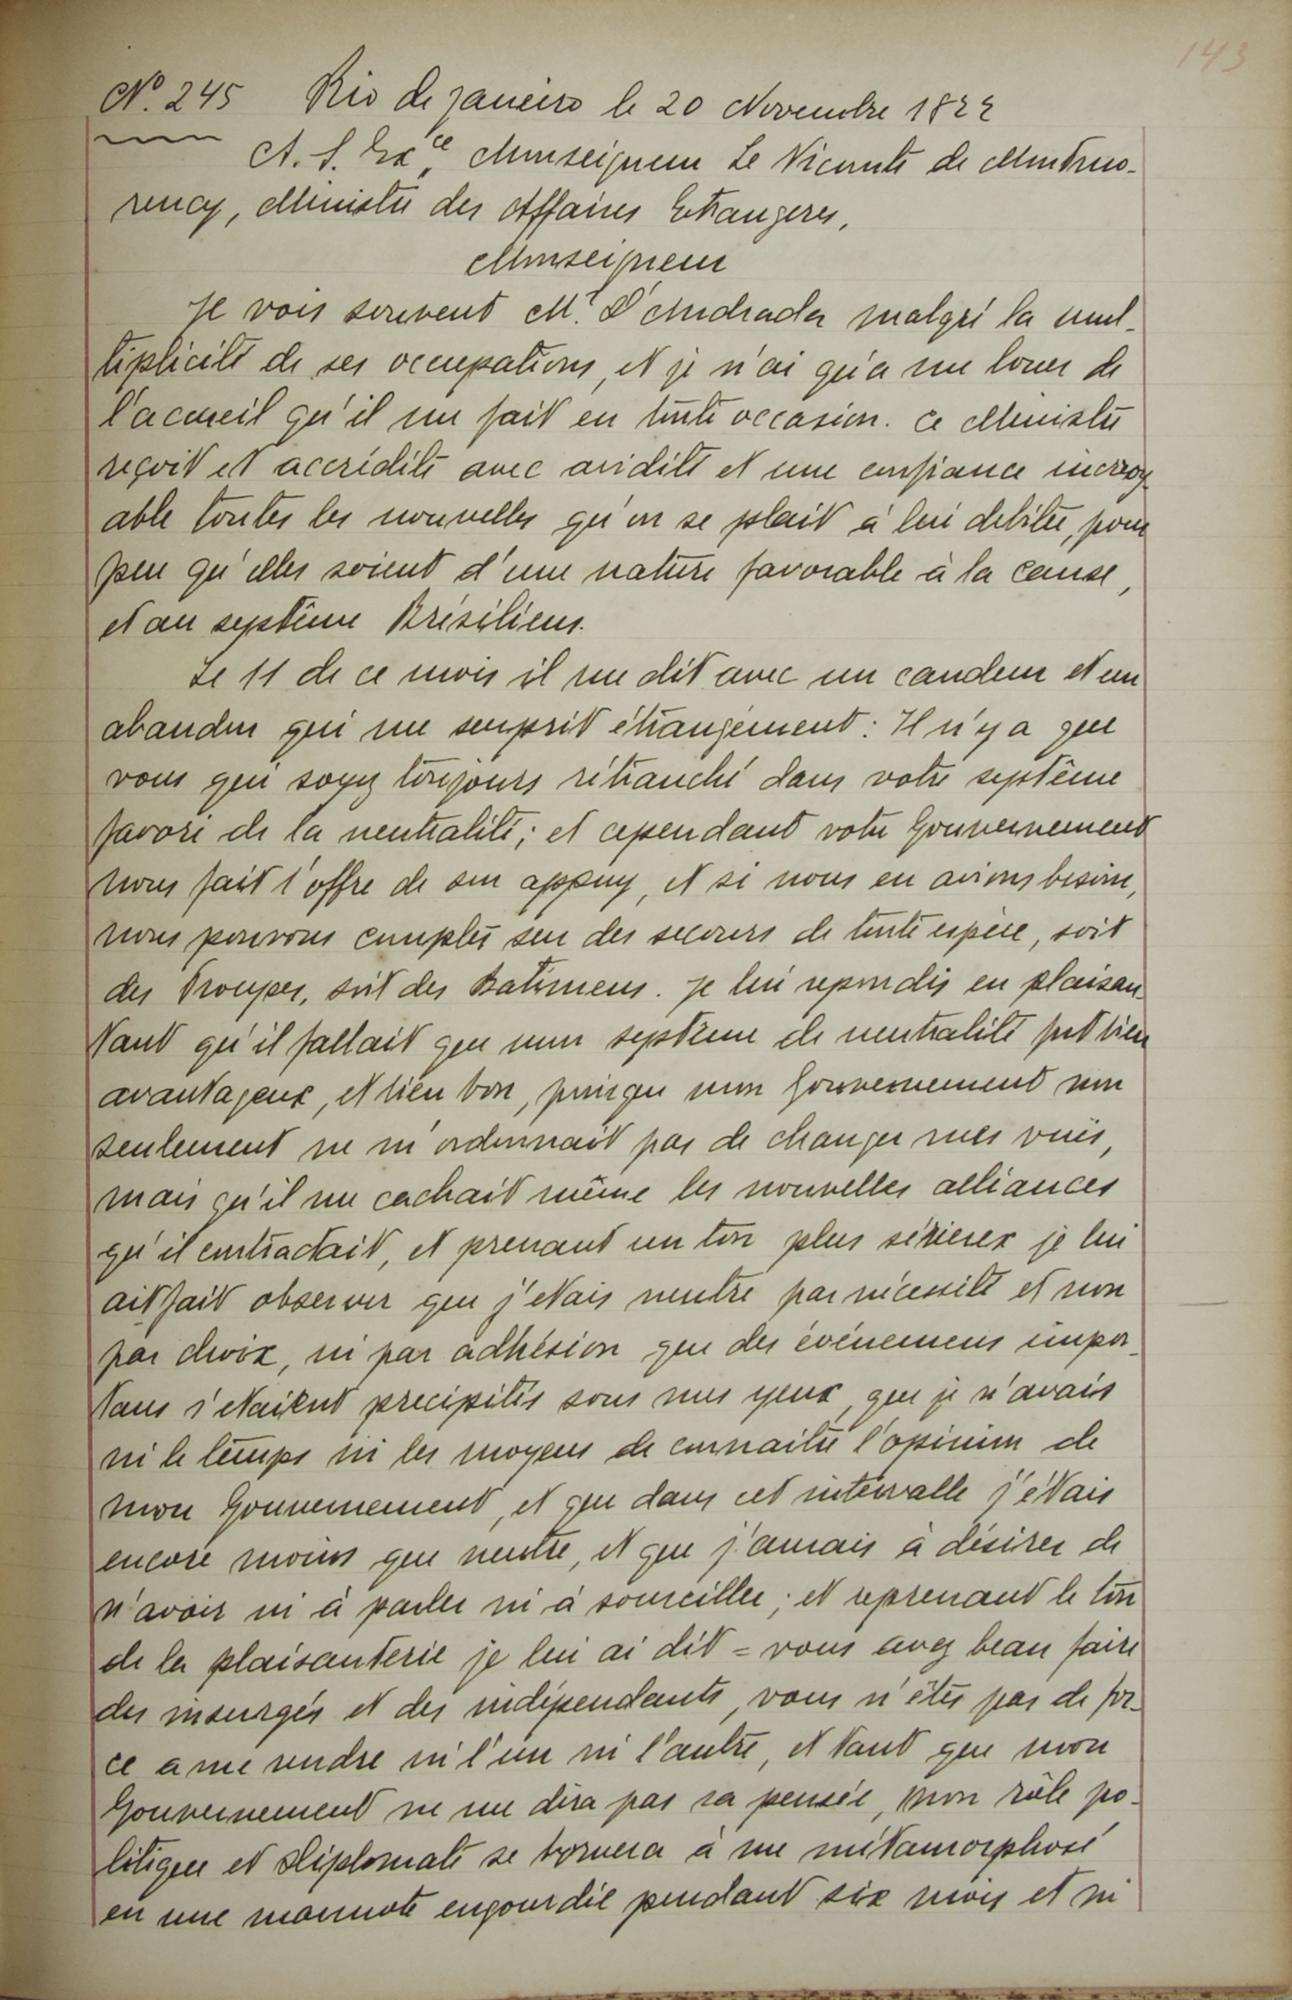 143
No. 245 Rio de Janeiro le 20 Novembre 1822
A. S. Exce, Monseigneur Le Vicomte de Montmo-
rency, Ministre des Affaires Etrangeres,
Monseigneur
Je vois souvent Mr. D'Andrada malgré la mul-
tiplicité de ses occupations, et je n'ai qu'a me louer de
l'accueil qu'il me fait en toute occasion. Ce Ministre
reçoit et accrédite avec avidité et une confiance incroy-
able toutes les nouvelles qu'on se plait à lui debiter, pour
peu qu'elles soient d'une nature favorable à la cause,
et au septême Brésiliens.
Le 11 de ce mois il me dit avec un candeur et un
abandon qui me surprit étrangement: Il n'y a que
vous qui soyez toujours rétranché dans votre septême
favori de la neutralité; et cependant votre Gouvernement
nous fait l'offre de son appuy, et si nous en avions besoin,
nous pouvons compter sur des secours de toute espèce, soit
des Troupes, soit des Batimens. Je lui repondis en plaisan-
tant qu'il fallait que mon septême de neutralité fut bien
avantageux, et bien bon, puisque mon Gouvernement non
seulement ne m'ordonnait pas de changer mes vues,
mais qu'il me cachait même les nouvelles alliances
qu'il contractait, et prenant un ton plus sérieux je lui
ait fait observer que j'etais neutre par nécessité et non
par choix, ni par adhésion que des événemens impor-
tans s'etaient precipités sous mes yeux, que je n'avais
ni le temps ni les moyens de connaitre l'opinion de
mon Gouvernement, et que dans cet intervalle j'étais
encore moins que neutre, et que j'aurais à désirer de
n'avoir ni à parler ni à sourciller; et reprenant le ton
de la plaisanterie je lui ai dit = vous avez beau faire
des insurgés et des indépendants, vous n'êtes pas de for-
ce a me rendre ni l'un ni l'autre, et tant que mon
Gouvernement ne me dira pas sa pensée, mon rôle po-
litique et diplomate se bornera à me métamorphosé
en une marmote engourdie pendant six mois et ni